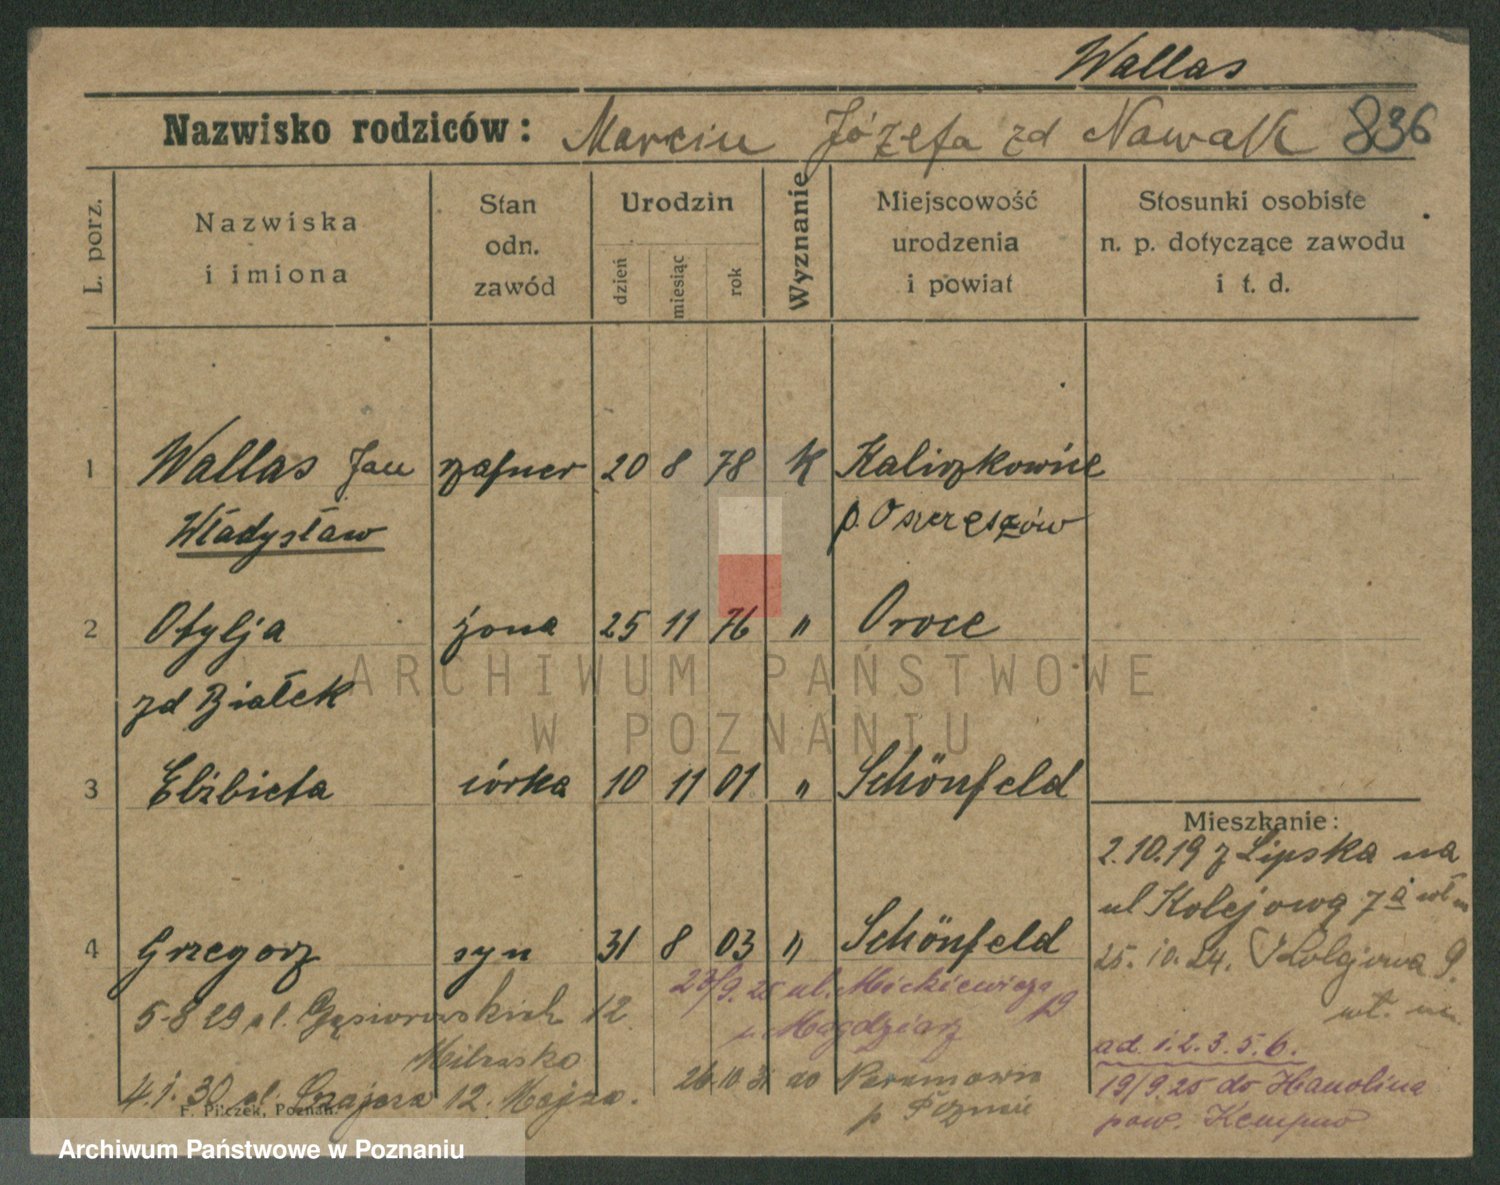 Wallas
Nazwisko rodziców: Marcin Józefa zd Nowak 836
L. porz.
Nazwiska i imiona
Stan odn. zawód
Urodzin
dzień miesiąc rok
Wyznanie
Miejscowość urodzenia i powiat
Stosunki osobiste n. p. dotyczące zawodu i t. d.
1 Wallas Jan szafner 20 8 78 K Kaliszkowice
Władysław p. Ostrzeszów
2 Otylja żona 25 11 76 " Oroce
zd Białek
ARCHIWUM PAŃSTWOWE
W POZNANIU
3 Elżbieta córka 10 11 01 " Schönfeld
Mieszkanie:
2.10.19 z Lipska na
ul Kolejową 7a
4 Grzegorz syn 31 8 03 " Schönfeld
25.10.24. Kolejowa 9.
5-8 29 pl. Gąsiorowskich 12
ul. Mickiewicza 19
p. Magdziarz
ad 1.2.3.5.6.
19/9.25 do Hanolina
pow. Kempno
4.1.30 12.
26.10.31 do
p Poznań
F. Pilczek, Poznań.
Archiwum Państwowe w Poznaniu